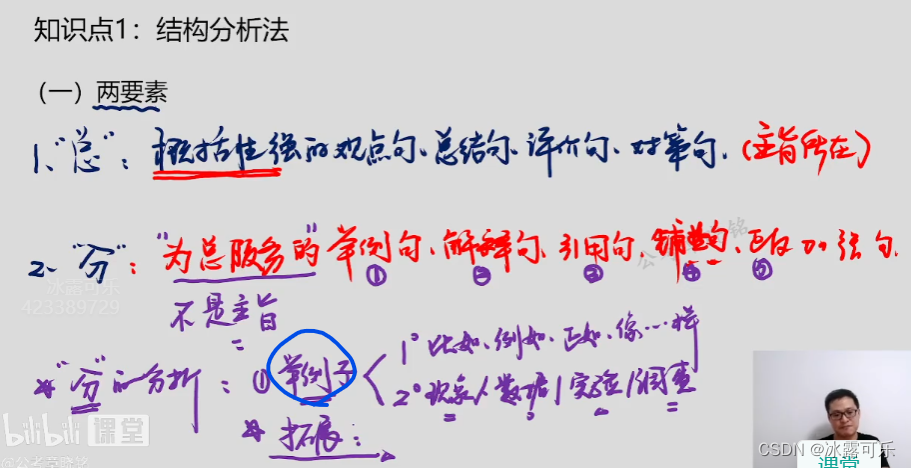 知识点1：结构分析法
（一）两要素
1、“总”：概括性强的观点句、总结句、评价句、对策句.（主旨所在）
2、“分”：“为总服务的”举例句、解释句、引用句、铺垫句、正反加强句.
① ② ③ ④ ⑤
不是主旨
冰露可乐
423389729
*“分”的分析：①举例子
1° 比如、例如、正如、像…一样
2° 现象/数据/实验/调查
* 拓展：
bilibili 课堂
CSDN @冰露可乐
课堂